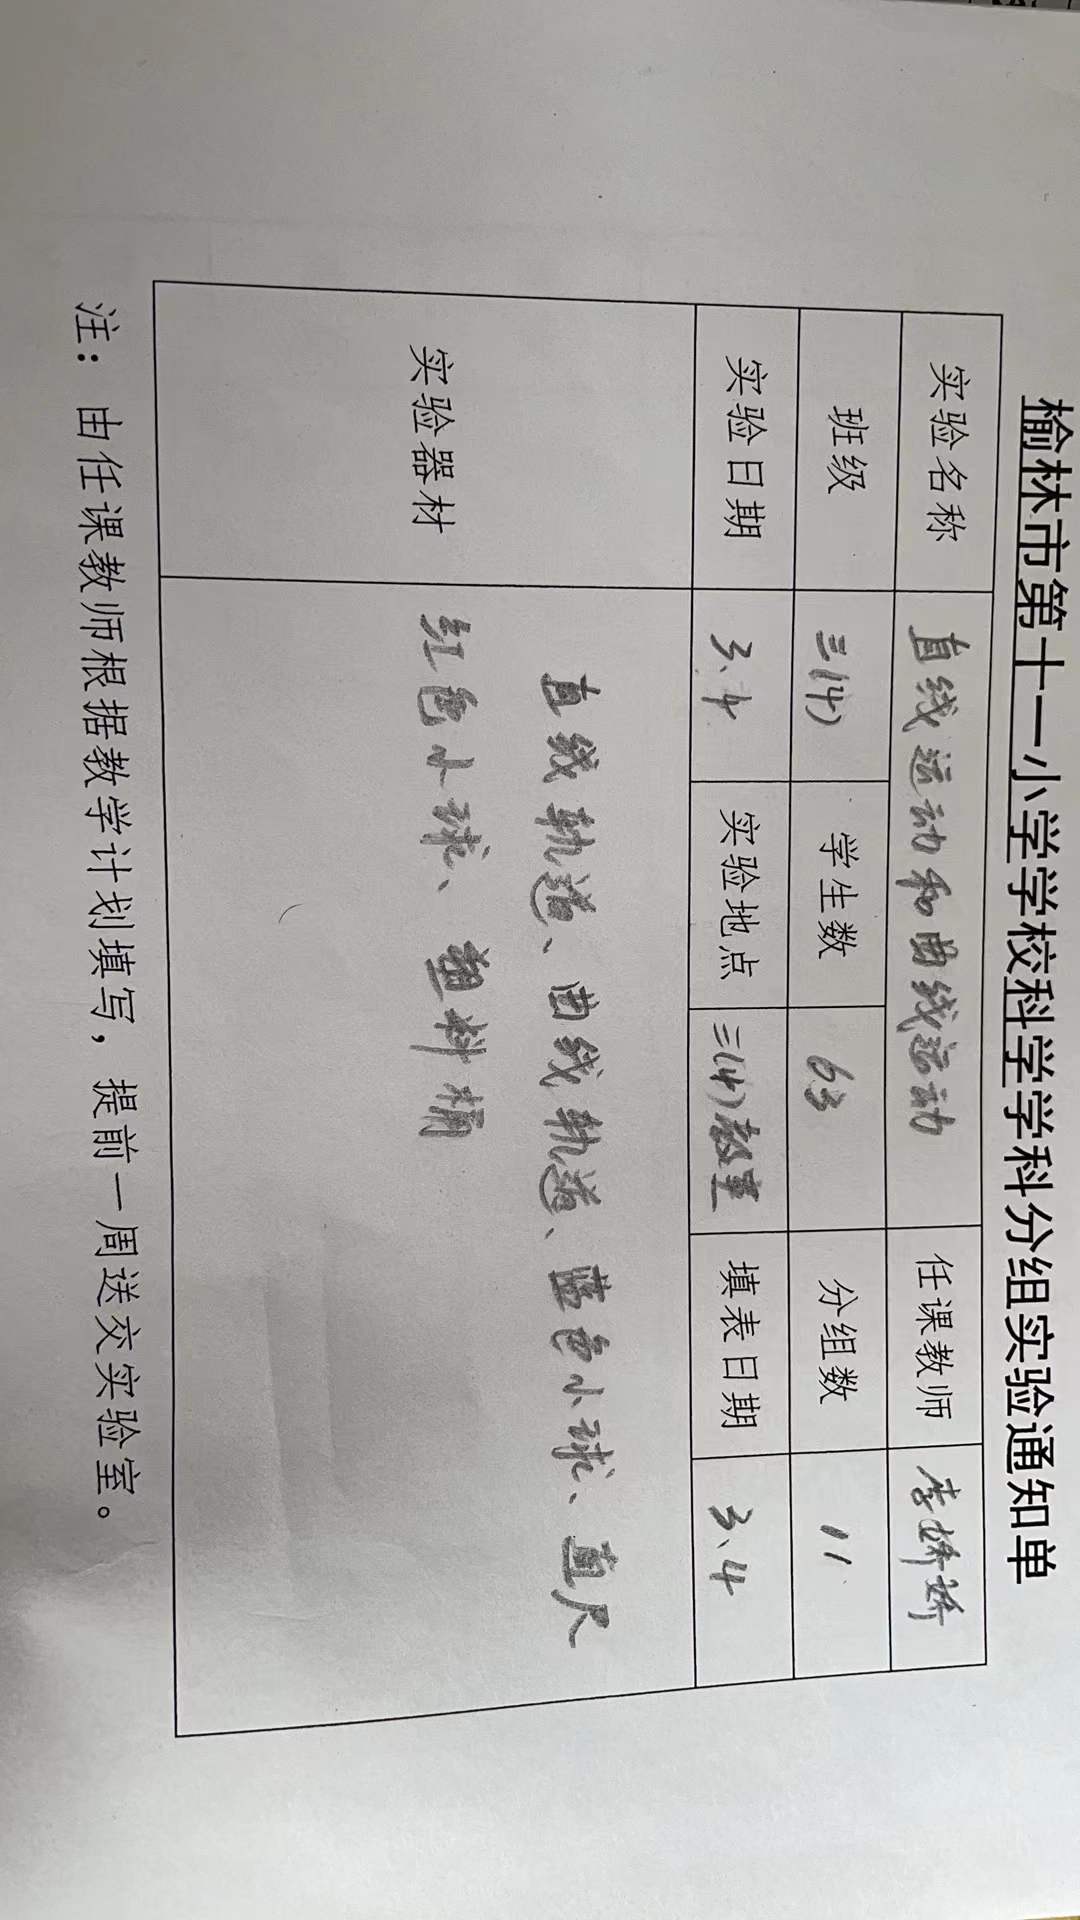 榆林市第十一小学学校科学学科分组实验通知单
实验名称 直线运动和曲线运动 任课教师 李娇娇
班级 三(4) 学生数 63 分组数 11
实验日期 3.4 实验地点 三(4)教室 填表日期 3.4
实验器材 直线轨道、曲线轨道、蓝色小球、直尺
红色小球、塑料桶
注：由任课教师根据教学计划填写，提前一周送交实验室。